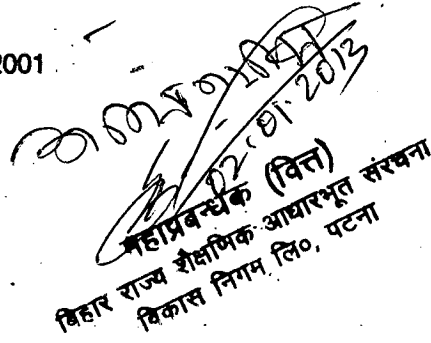 2001
02.01.2013
महाप्रबन्धक (वित्त)
बिहार राज्य शैक्षणिक आधारभूत संरचना
विकास निगम लि०, पटना